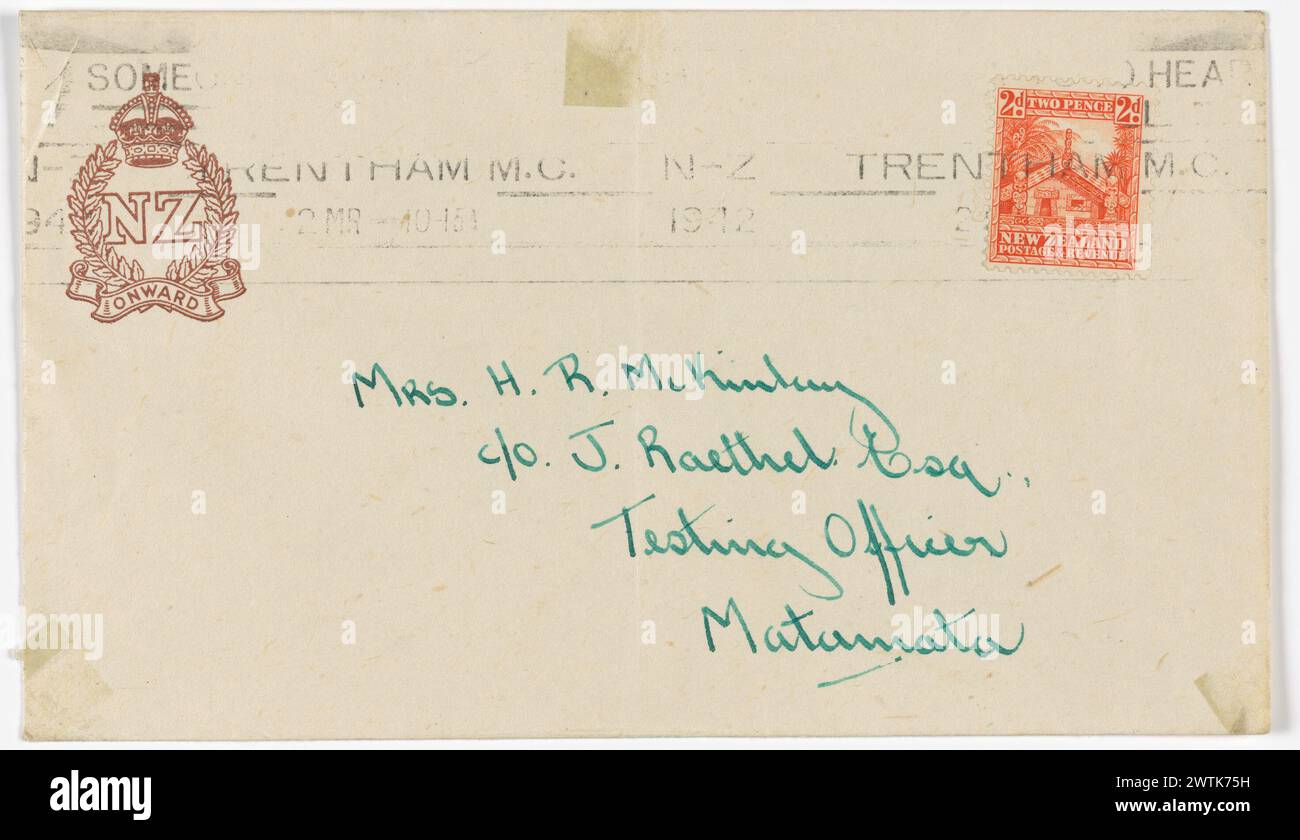 SOME
HEAR
N-Z TRENTHAM M.C. N-Z TRENTHAM M.C.
2 MR 10-15A 1942
NZ
ONWARD
2d TWO PENCE 2d
NEW ZEALAND
POSTAGE & REVENUE
Mrs. H. R. McKinlay
c/o. J. Raethel Esq.,
Testing Officer
Matamata
alamy
Image ID: 2WTK75H
www.alamy.com